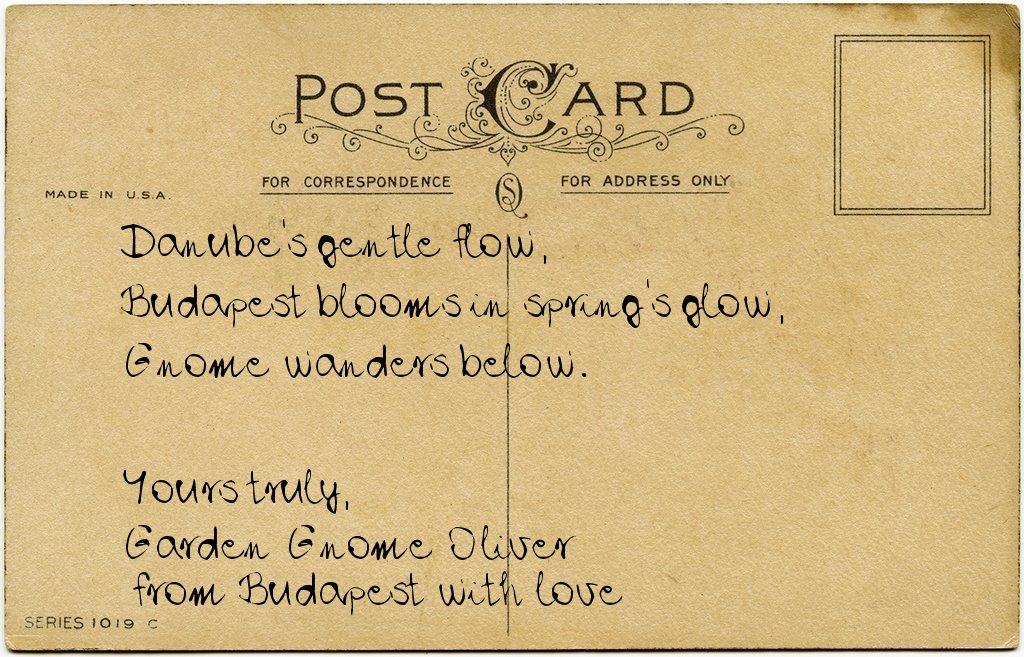 POST CARD
FOR CORRESPONDENCE
FOR ADDRESS ONLY
MADE IN U.S.A.
Danube's gentle flow,
Budapest blooms in spring's glow,
Gnome wanders below.
Yours truly,
Garden Gnome Oliver
from Budapest with love
SERIES 1019 C